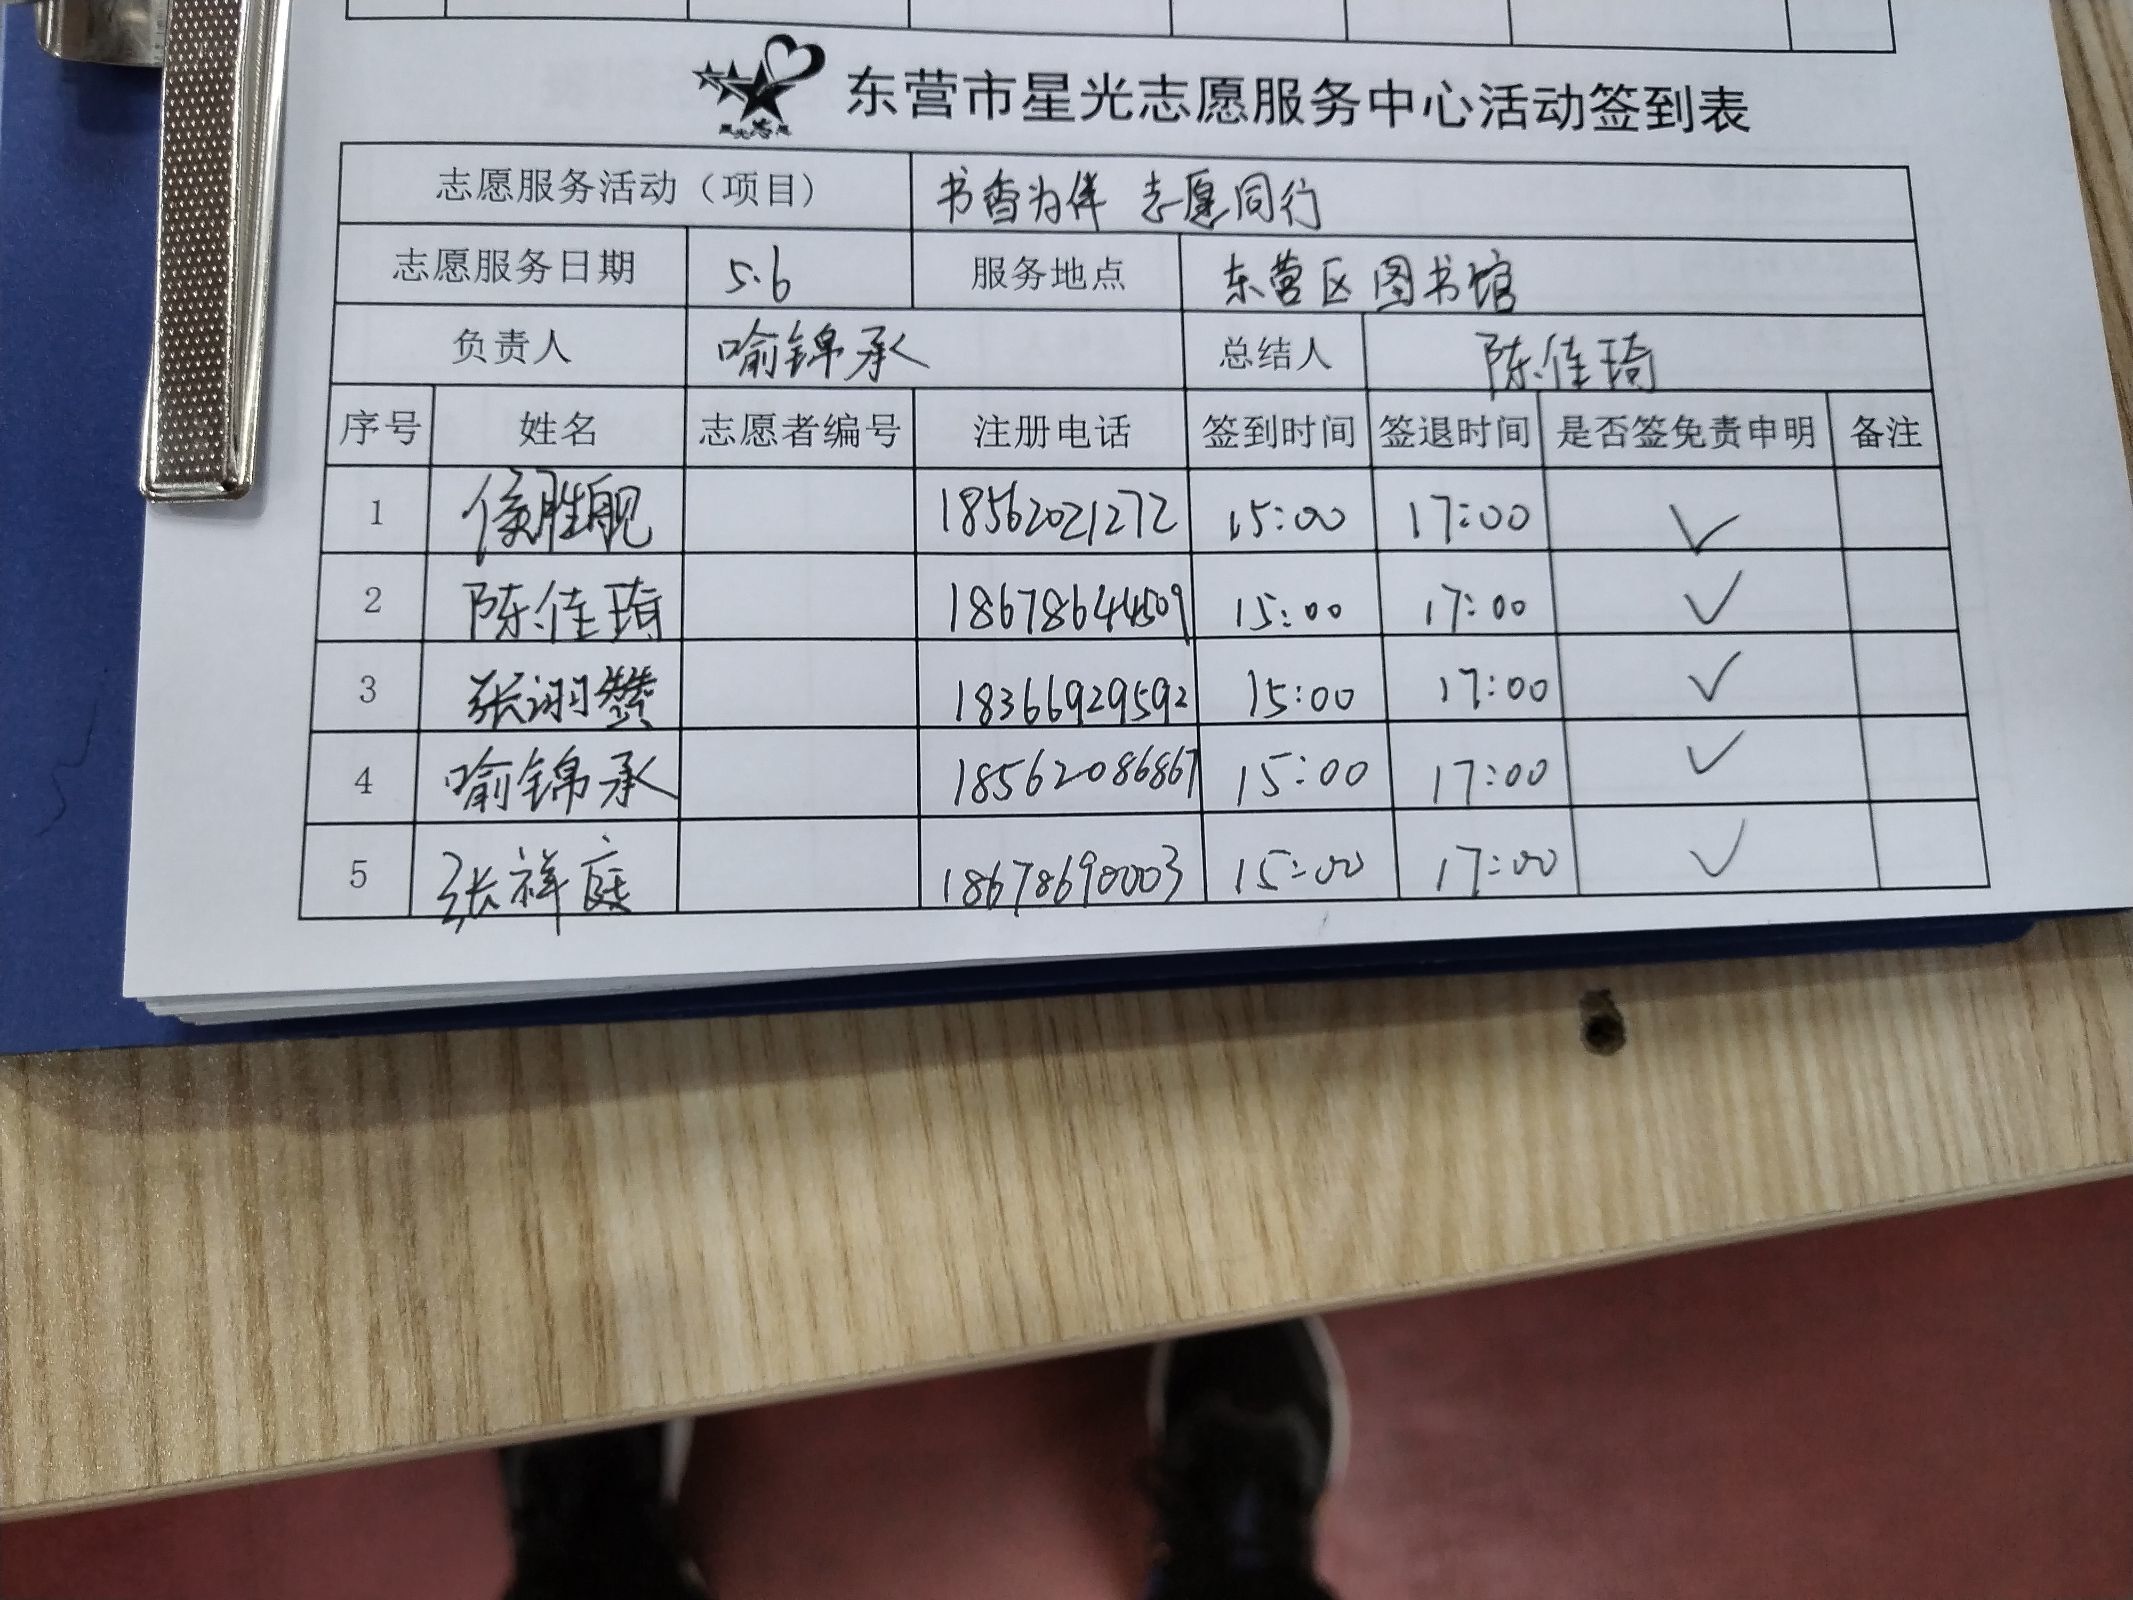 东营市星光志愿服务中心活动签到表
志愿服务活动（项目） 书香为伴 志愿同行
志愿服务日期 5.6 服务地点 东营区图书馆
负责人 喻锦承 总结人 陈佳琦
序号 姓名 志愿者编号 注册电话 签到时间 签退时间 是否签免责申明 备注
1 侯胜舰 18562021272 15:00 17:00 ✓
2 陈佳琦 18678644509 15:00 17:00 ✓
3 张翊赞 18366929592 15:00 17:00 ✓
4 喻锦承 18562086867 15:00 17:00 ✓
5 张祥庭 18678690003 15:00 17:00 ✓